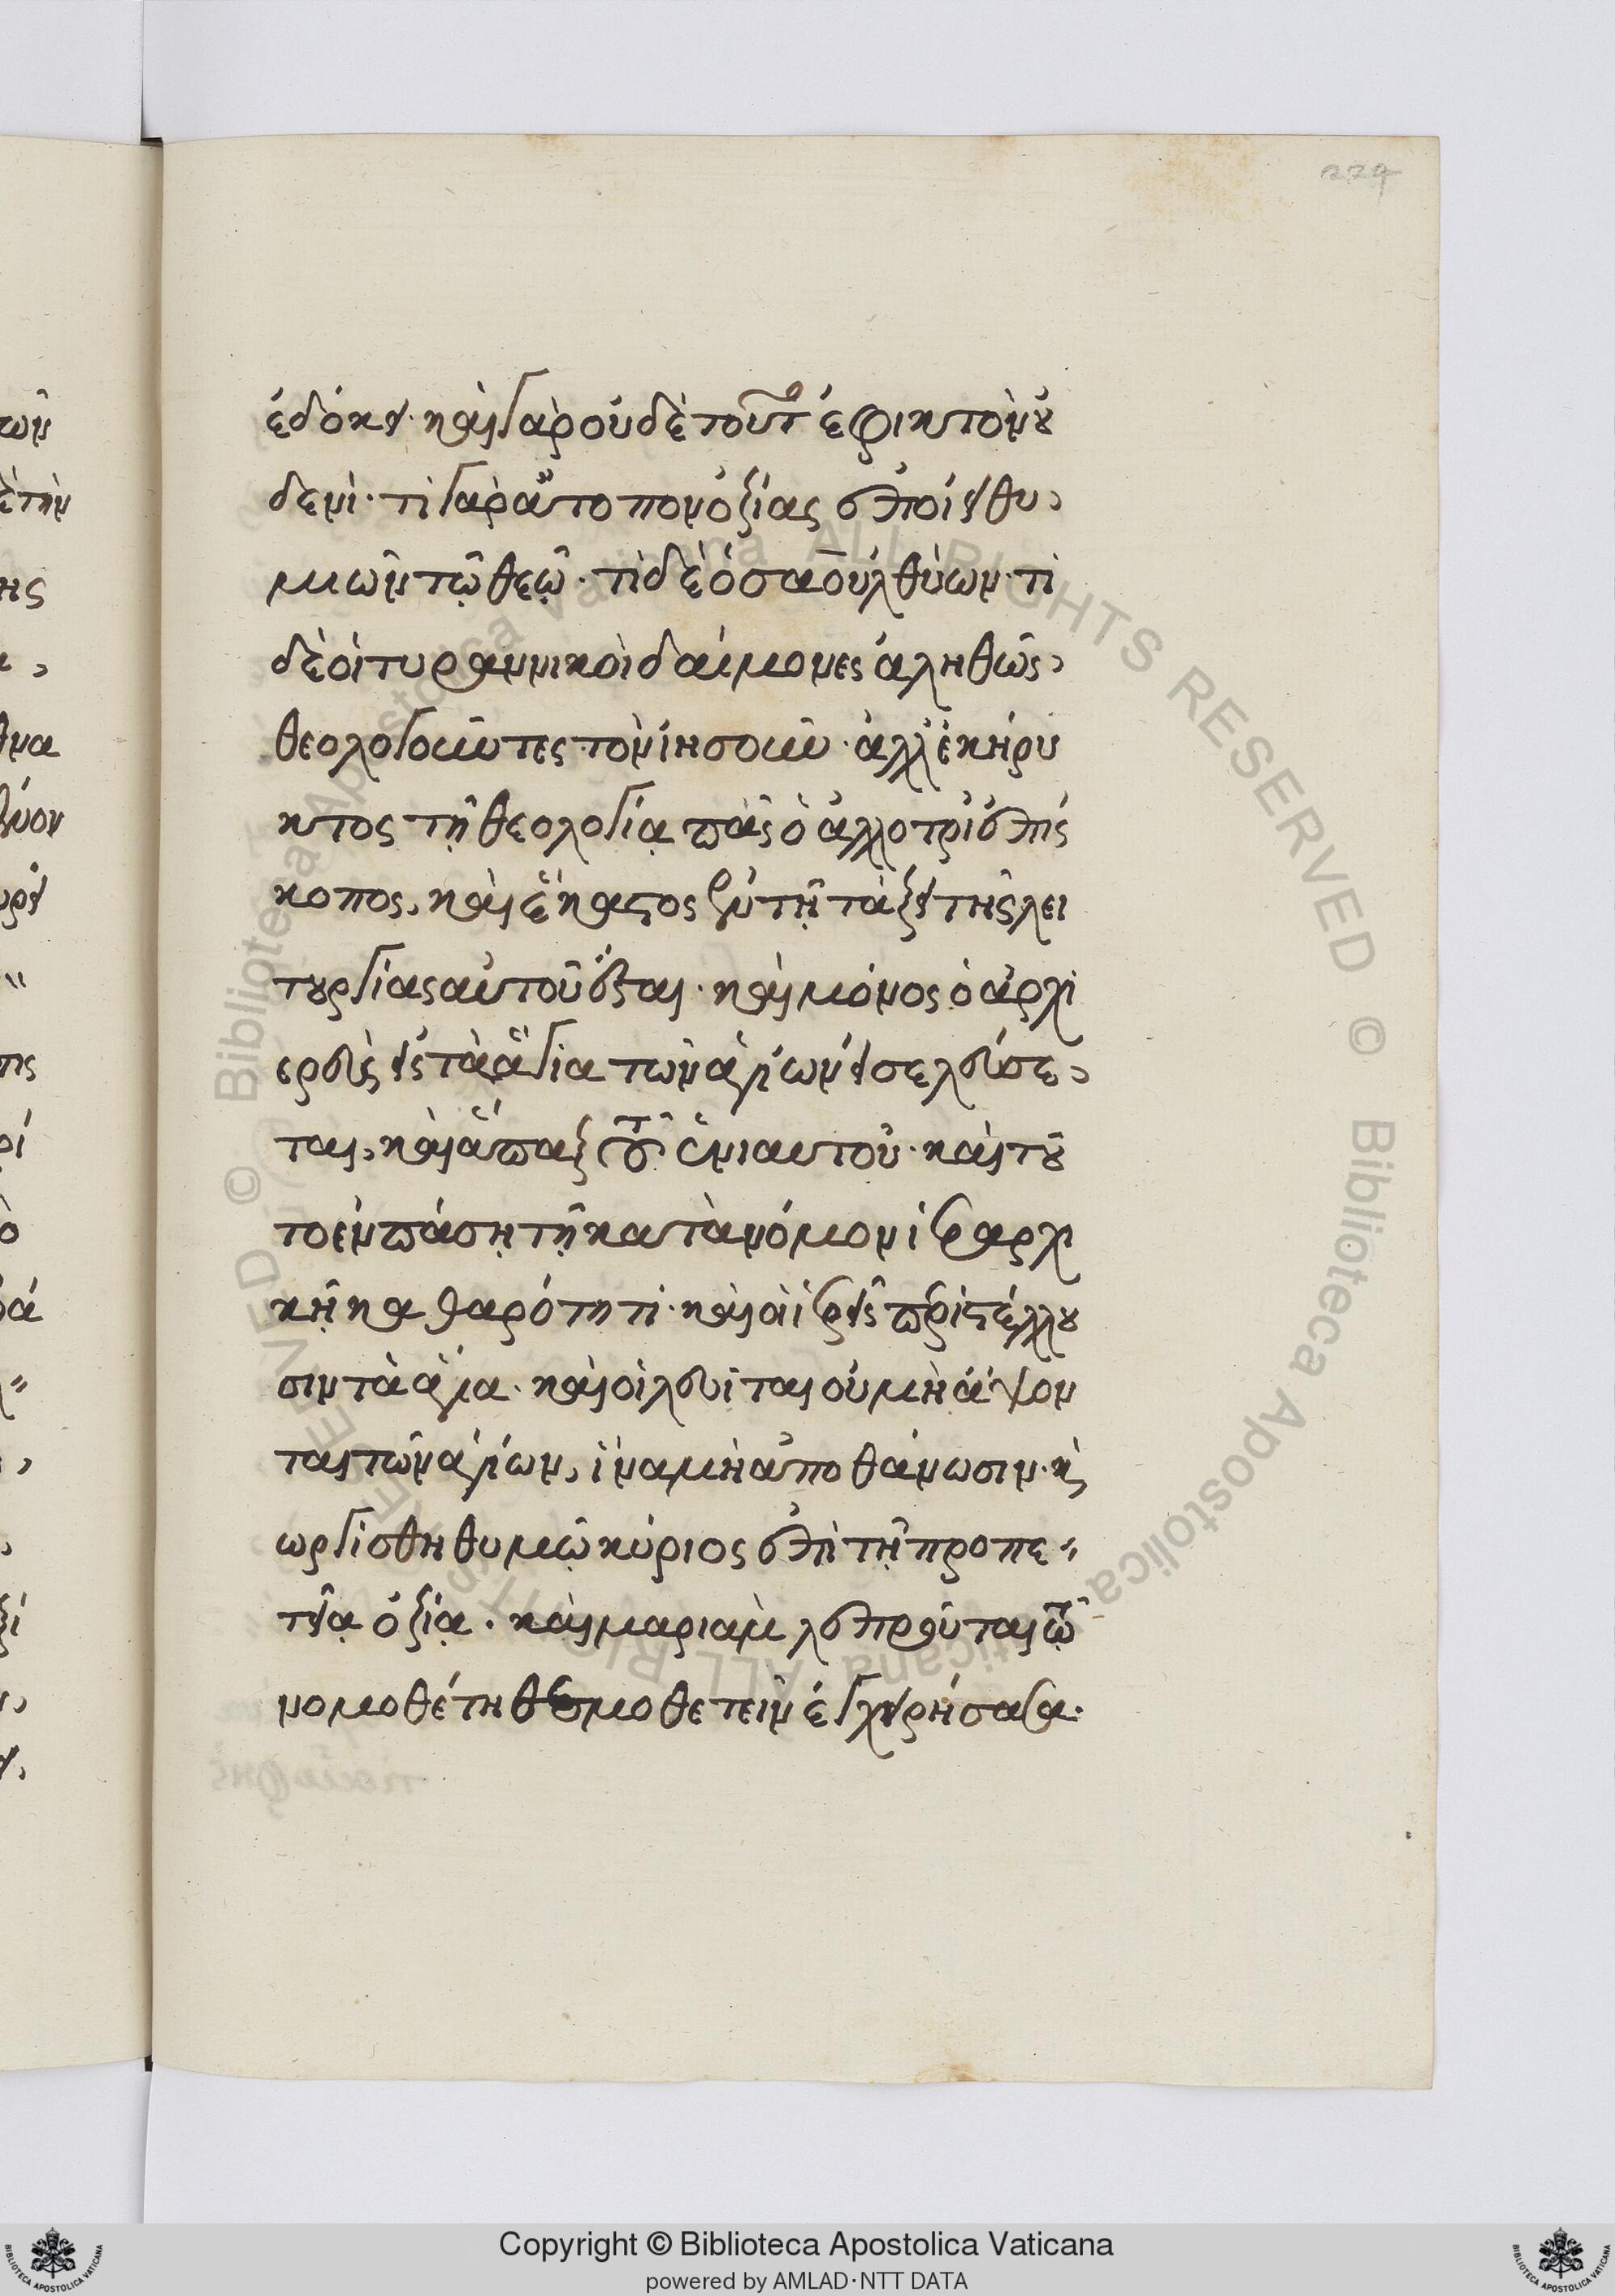 224
ἐδόκει· καὶ γὰρ οὐδὲ τοῦτ ἐφικτὸν οὐ
δενί· τί γὰρ ἄτοπον ὀζίας ἐποίει θυ
μιῶν τῷ θεῷ· τί δὲ ὁ σαοὺλ θύων· τί
δὲ οἱ τυραννικοὶ δαίμονες ἀληθῶς
θεολογοῦντες τὸν ἰησοῦν· ἀλλ' ἐκκήρυ
κτος τῇ θεολογίᾳ πᾶς ὁ ἀλλοτριεπίσ
κοπος, καὶ ἕκαστος ἐν τῇ τάξει τῆς λει
τουργίας αὐτοῦ ἔσται· καὶ μόνος ὁ ἀρχι
ερεὺς εἰς τὰ ἅγια τῶν ἁγίων εἰσελεύσε
ται, καὶ ἅπαξ τοῦ ἐνιαυτοῦ· καὶ τοῦ
το ἐν πάσῃ τῇ κατὰ νόμον ἱεραρχι
κῇ καθαρότητι· καὶ οἱ ἱερεῖς περιστέλλου
σιν τὰ ἅγια· καὶ οἱ λευῖται οὐ μὴ ἅψον
ται τῶν ἁγίων, ἵνα μὴ ἀποθάνωσιν· κὶ
ὠργίσθη θυμῷ κύριος ἐπὶ τῇ προπε
τείᾳ ὀζίᾳ· καὶ μαριὰμ λεπροῦται τῷ
νομοθέτῃ θεσμοθετεῖν ἐγχειρήσασα·
Copyright © Biblioteca Apostolica Vaticana
powered by AMLAD·NTT DATA